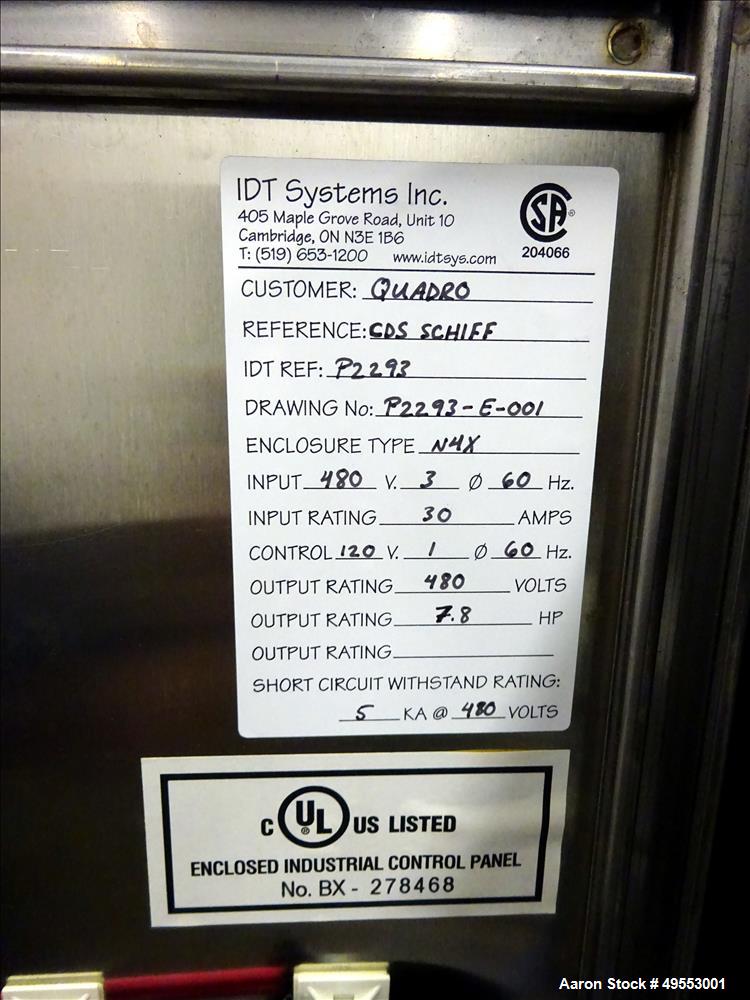 IDT Systems Inc.
405 Maple Grove Road, Unit 10
Cambridge, ON N3E 1B6
T: (519) 653-1200 www.idtsys.com
SA ®
204066
CUSTOMER: QUADRO
REFERENCE: CDS SCHIFF
IDT REF: P2293
DRAWING No: P2293-E-001
ENCLOSURE TYPE N4X
INPUT 480 V. 3 Ø 60 Hz.
INPUT RATING 30 AMPS
CONTROL 120 V. 1 Ø 60 Hz.
OUTPUT RATING 480 VOLTS
OUTPUT RATING 7.8 HP
OUTPUT RATING
SHORT CIRCUIT WITHSTAND RATING:
5 KA @ 480 VOLTS
C UL ® US LISTED
ENCLOSED INDUSTRIAL CONTROL PANEL
No. BX - 278468
Aaron Stock #49553001